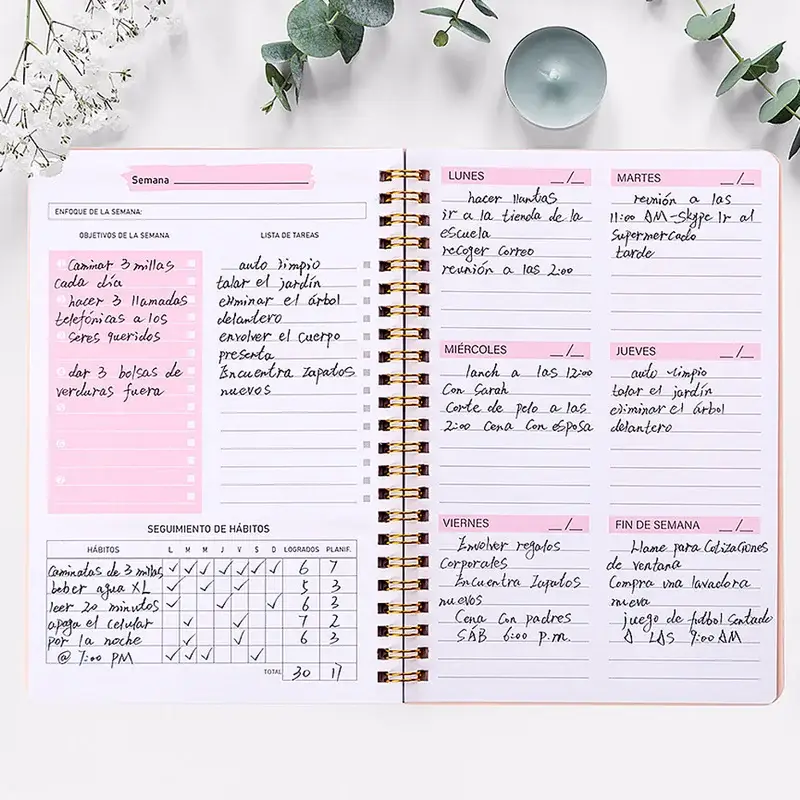 Semana
ENFOQUE DE LA SEMANA:
OBJETIVOS DE LA SEMANA
Caminar 3 millas
cada día
hacer 3 llamadas
telefónicas a los
seres queridos
dar 3 bolsas de
verduras fuera
LISTA DE TAREAS
auto limpio
talar el jardín
eliminar el árbol
delantero
envolver el cuerpo
presenta
Encuentra zapatos
nuevos
SEGUIMIENTO DE HÁBITOS
HÁBITOS L M M J V S D LOGRADOS PLANIF.
Caminatas de 3 millas ✓ ✓ ✓ ✓ ✓ ✓ ✓ 6 7
beber agua XL ✓ ✓ ✓ 5 3
leer 20 minutos ✓ ✓ ✓ 6 3
apaga el celular ✓ ✓ 7 2
por la noche ✓ ✓ 6 3
@ 7:00 PM ✓ ✓ ✓ ✓
TOTAL 30 17
LUNES __/__
hacer llantas
ir a la tienda de la
escuela
recoger correo
reunión a las 2:00
MARTES __/__
reunión a las
11:00 AM-Skype Ir al
supermercado
tarde
MIÉRCOLES __/__
lanch a las 12:00
Con Sarah
Corte de pelo a las
2:00 Cena Con esposa
JUEVES __/__
auto limpio
talar el jardín
eliminar el árbol
delantero
VIERNES __/__
Envolver regalos
Corporales
Encuentra Zapatos
nuevos
Cena Con padres
SÁB 6:00 p.m.
FIN DE SEMANA __/__
Llame para Cotizaciones
de ventana
Compra una lavadora
nueva
juego de futbol sentado
A LAS 9:00 AM